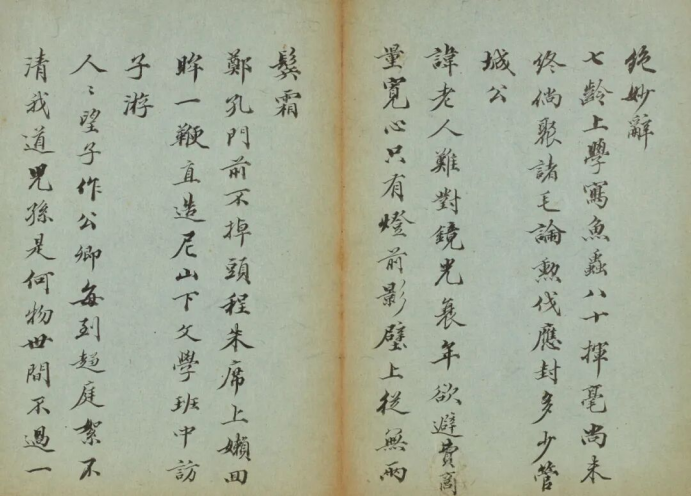 絕妙辭
七齡上學寫魚蟲八十揮毫尚未
終倘聚諸毛論勲伐應封多少管
城公
諱老人難對鏡光衰年欲避費商
量寬心只有燈前影壁上從無兩
鬂霜
鄭孔門前不掉頭程朱席上嬾回
眸一鞭直造尼山下文學班中訪
子游
人〻望子作公卿每到趨庭絮不
清我道兒孫是何物世間不過一